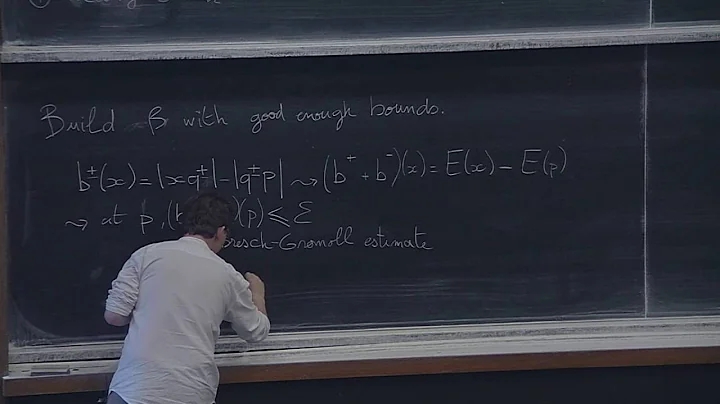 Build β with good enough bounds.
b±(x) = |xq±| - |q±p| ⇝ (b⁺ + b⁻)(x) = E(x) - E(p)
⇝ at p, (b )(p) ⩽ Ɛ
resch-Gromoll estimate